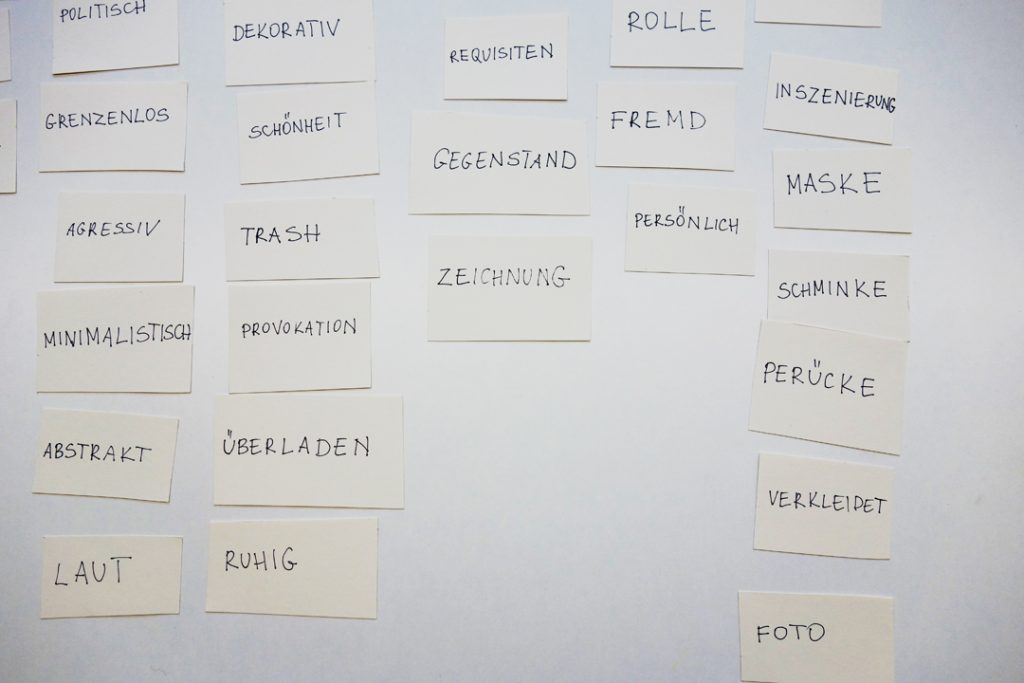 POLITISCH
GRENZENLOS
AGRESSIV
MINIMALISTISCH
ABSTRAKT
LAUT
DEKORATIV
SCHÖNHEIT
TRASH
PROVOKATION
ÜBERLADEN
RUHIG
REQUISITEN
GEGENSTAND
ZEICHNUNG
ROLLE
FREMD
PERSÖNLICH
INSZENIERUNG
MASKE
SCHMINKE
PERÜCKE
VERKLEIDET
FOTO